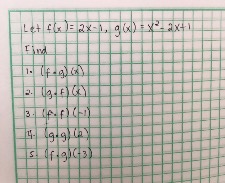 Let f(x) = 2x-1, g(x) = x² - 2x+1
Find
1. (f∘g)(x)
2. (g∘f)(x)
3. (f∘f)(-1)
4. (g∘g)(2)
5. (f∘g)(-3)